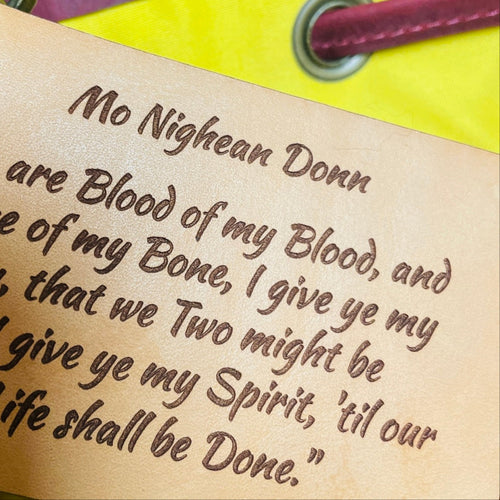 Mo Nighean Donn
are Blood of my Blood, and
e of my Bone, I give ye my
, that we Two might be
give ye my Spirit, 'til our
ife shall be Done."